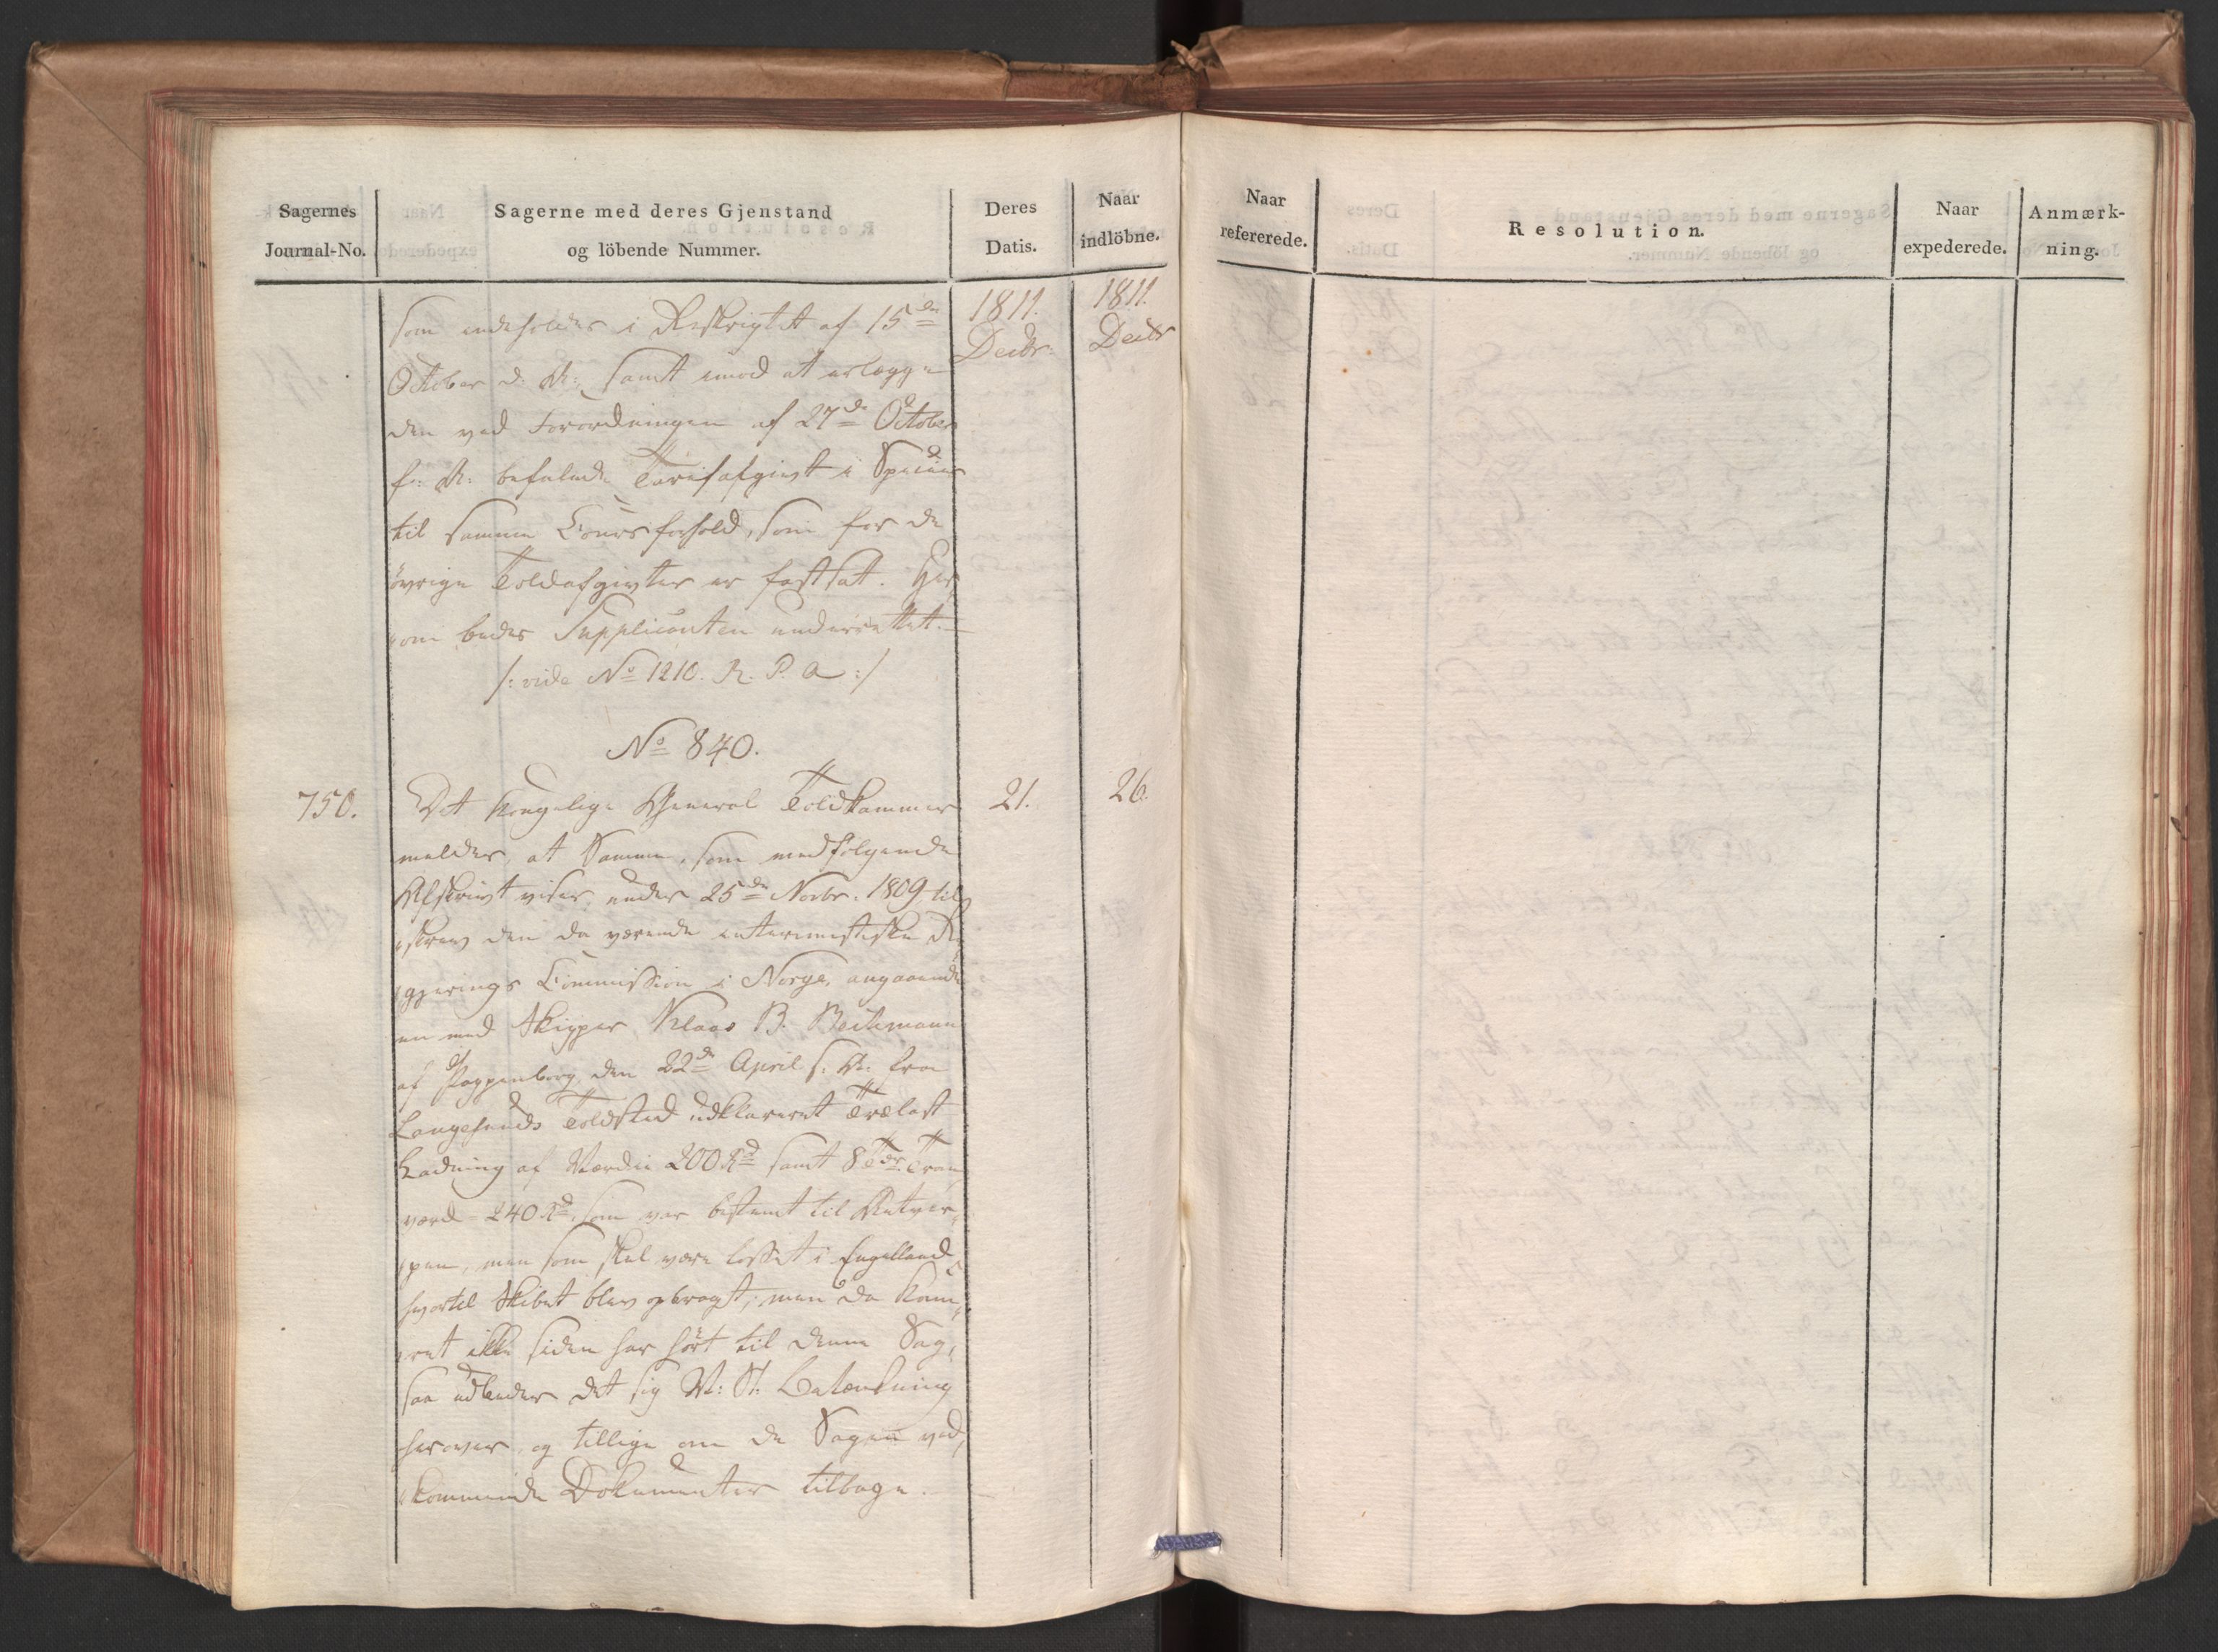 Sagernes
Journal-No.
Sagerne med deres Gjenstand
og löbende Nummer.
Deres
Datis.
Naar
indlöbne.
1811.
Decbr:
1811.
Decbr
som indeholdes i Reskriptet af 15de
October d: A: samt imod at erlægge
den ved Forordningen af 27de October
f: A: befalede Tarifafgivt i Species
til samme Coursforhold, som for de
övrige Toldafgivter er fastsat. Her,
„om bedes Supplicanten underrettet.—
/: vide No 1210. R. P. A :/
No 840.
750.
21.
26.
Det Kongelige General Toldkammer
melder, at Samme, som medfölgende
Afskrivt viser, under 25de Novbr. 1809 til,
„skrev den da værende interimistiske Re,
„gjerings Commission i Norge, angaaende
en med Skipper Klaas B. Beckmann
af Pappenborg den 22de April s: A: fra
Langesunds Toldsted udklareret Trælast
Ladning af Værdie 200 Rd samt 8 Tdr. Tran
værd 240 Rd, som var bestemt til Antver,
„pen, men som skal være losset i Engelland,
hvortil Skibet blev opbragt; men da Kam,
„ret ikke siden har hört til denne Sag,
saa udbeder det sig R: St: Betænkning
herover, og tillige om de Sagen ved,
„kommende Dokumenter tilbage.
Naar
refererede.
Resolution.
Naar
expederede.
Anmærk-
ning.